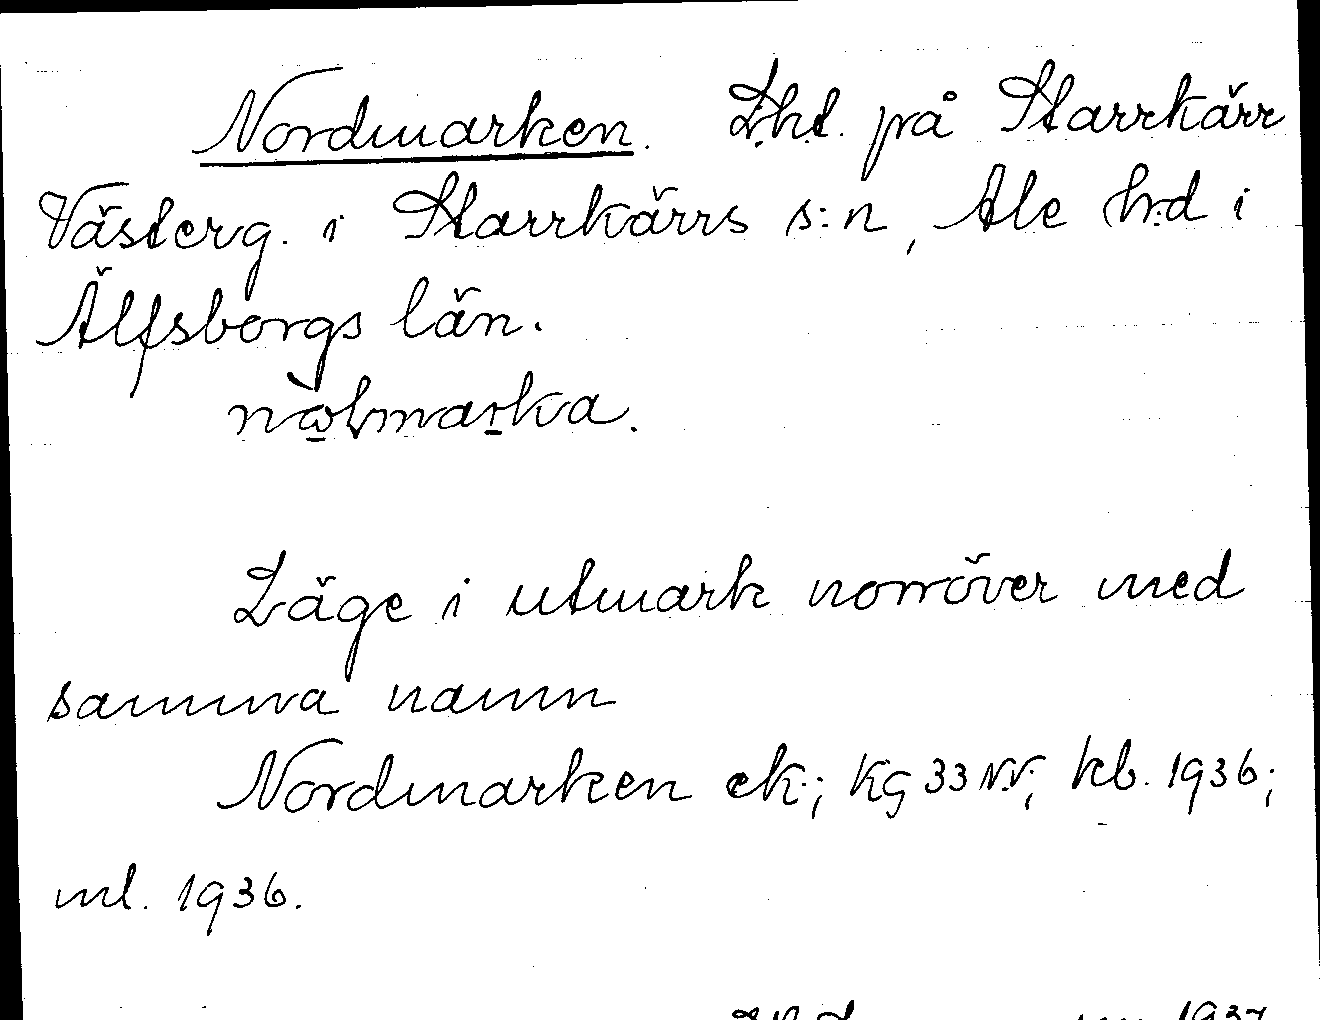 Nordmarken. Lht. på Starrkärr
Västerg. i Starrkärrs s:n, Ale h:d i
Älfsborgs län.
nòlmarka.
Läge i utmark norröver med
samma namn
Nordmarken ek.; Kg 33 NV; kb. 1936;
ml. 1936.
1937